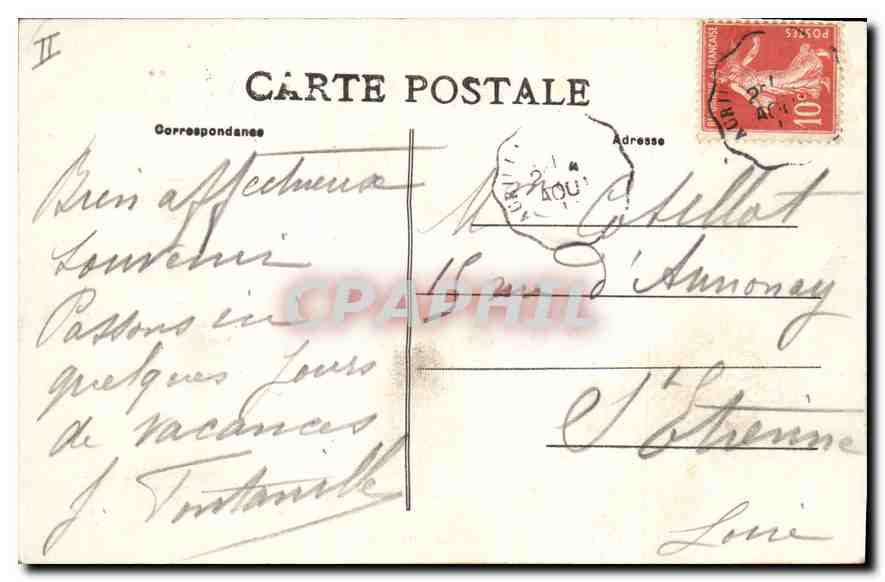 II
CARTE POSTALE
Correspondance
Adresse
FRANÇAISE
POSTES
10
AOU
Bien affectueux
souvenir
Passons ici
quelques jours
de vacances
J. Fontanille
M Cotillat
15 rue d'Annonay
St Etienne
Loire
CPAPHIL